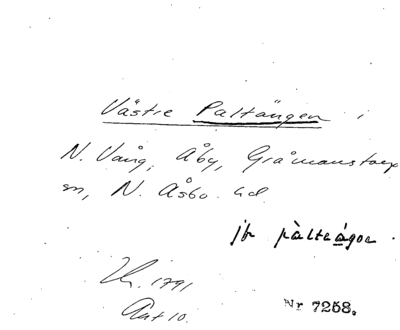 Västre Paltängen i
N. Vång, Åby, Gråmanstorps
sn, N. Åsbo hd.
jfr pàlteągor.
Kr. 1791
Akt 10.
Nr 7258.